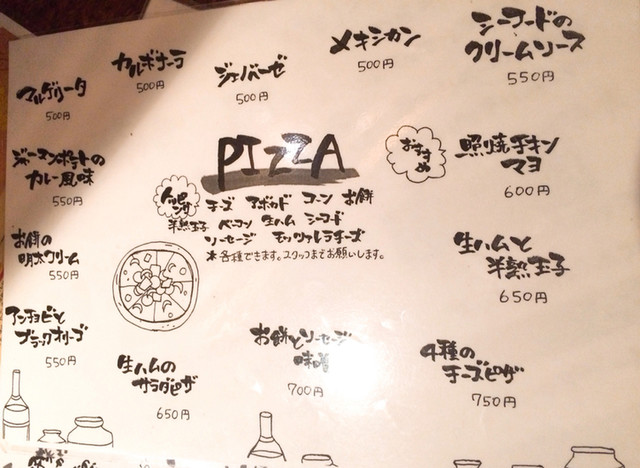 マルゲリータ
500円
カルボナーラ
500円
ジェノベーゼ
500円
メキシカン
500円
シーフードの
クリームソース
550円
ジャーマンポテトの
カレー風味
550円
PIZZA
おすすめ
照焼チキン
マヨ
600円
トッピング
チーズ アボカド コーン お餅
半熟玉子 ベーコン 生ハム シーフード
ソーセージ モッツァレラチーズ
*各種できます。スタッフまでお願いします。
お餅の
明太クリーム
550円
生ハムと
半熟玉子
650円
アンチョビと
ブラックオリーブ
550円
生ハムの
サラダピザ
650円
お餅とソーセージ
味噌
700円
4種の
チーズピザ
750円